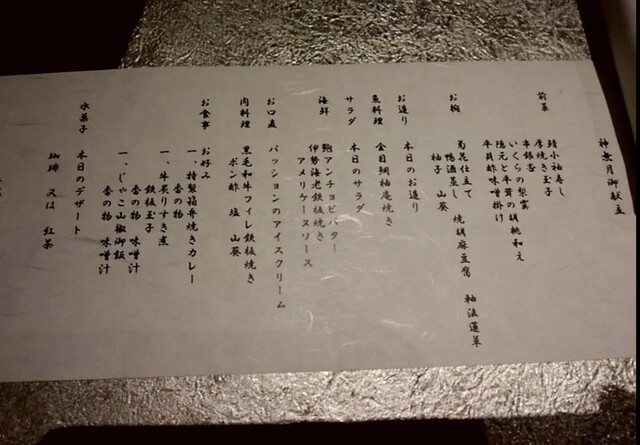 神無月御献立
前菜
鯖小袖寿し
厚焼き玉子
串銀杏
いくらの梨雲
隠元と平茸の胡桃和え
平貝酢味噌掛け
お椀
菊花仕立て
鴨酒蒸し 焼胡麻豆腐 軸法蓮草
柚子 山葵
お造り
本日のお造り
魚料理
金目鯛柚庵焼き
サラダ
本日のサラダ
海鮮
鮑アンチョビバター
伊勢海老鉄板焼き
アメリケーヌソース
お口直
パッションのアイスクリーム
肉料理
黒毛和牛フィレ鉄板焼き
ポン酢 塩 山葵
お食事
お好み
一、特製箱舟焼きカレー
香の物
一、牛炙りすき煮
鉄板玉子
香の物 味噌汁
一、じゃこ山椒御飯
香の物 味噌汁
水菓子
本日のデザート
珈琲 又は 紅茶